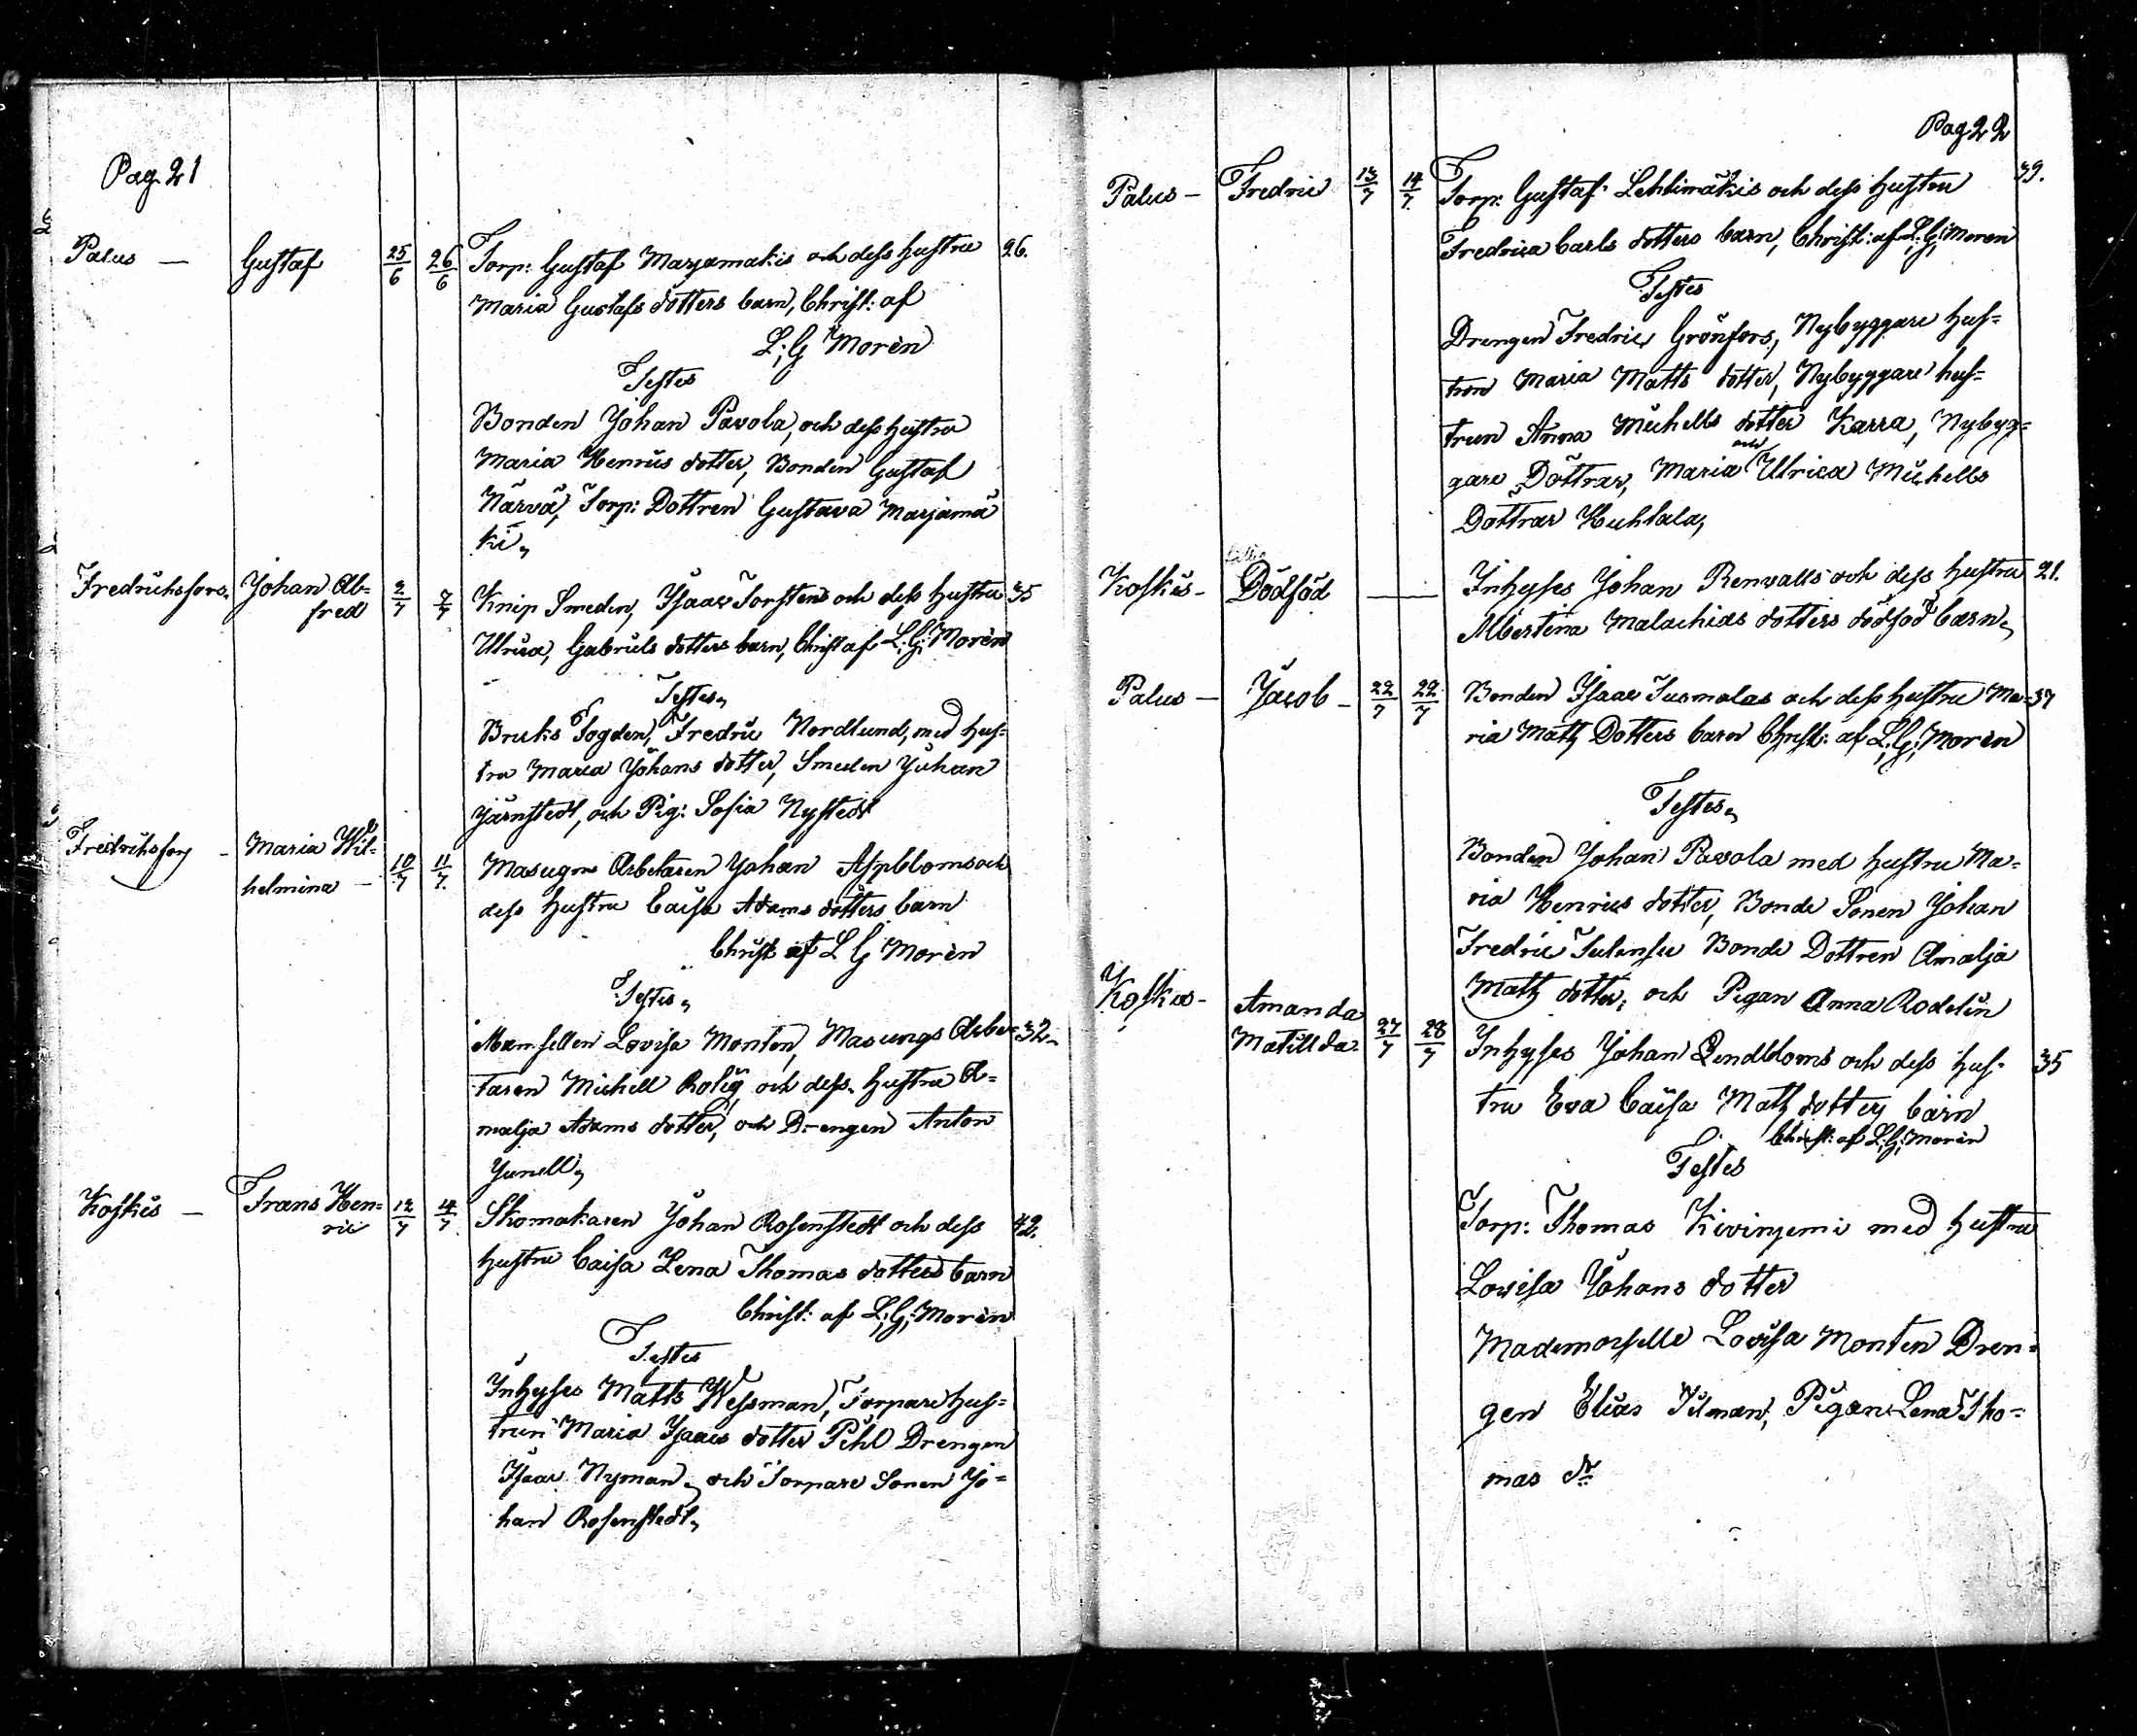 Pag. 21
Palus — Gustaf 25/6 26/6 Torp: Gustaf Marjamäkis och dess hustru 26.
Maria Gustafs dotters barn, Christ: af
L: G Morèn
Testes
Bonden Johan Pavola, och dess hustru
Maria Henrics dotter, Bonden Gustaf
Närvä, Torp: Dottren Gustava Marjamä
ki,
Fredrichsfors. Johan Al= 2/7 7/7 Knip Smeden, Isaac Torstens och dess hustru 35
fred Ulrica, Gabriels dotters barn, Christ af L. G. Morèn
Testes,
Bruks Fogden, Fredric Nordlund, med hus=
tru Maria Johans dotter, Smeden Johan
Järnstedt, och Pig: Sofia Nystedt
Fredrichsfors — Maria Wil= 10/7 11/7 Masugns Arbetaren Johan Aspbloms och
helmina — dess hustru Caisa Adams dotters barn
Christ af L G Morèn
Testes,
Mamsellen Lovisa Monten, Masungs Arbe= 32.
taren Michell Rolig, och dess hustru A=
malja Adams dotter, och Drengen Anton
Junell,
Koskis — Frans Hen= 12/7 14/7 Skomakaren Johan Rosenstedt och dess 42.
ric hustru Caisa Lena Thomas dotters barn
Christ: af L: G: Morèn
Testes
Inhyses Matts Wessman, Torpare hus=
trun Maria Isaacs dotter Pihl Drengen
Isaac Nyman, och Torpare Sonen Jo=
han Rosenstedt,
Pag 22
Palus — Fredric 13/7 14/7 Torp: Gustaf Lehtimäkis och dess hustru 39.
Fredrica Carls dotters barn, Christ: af L: G: Moren
Testes
Drengen Fredric Grönfors, Nybyggare hus=
tron Maria Matts dotter, Nybyggare hus=
trun Anna Michells dotter Karra, Nybyg=
gare Döttrar, Maria och Ulrica Michells
Döttrar Huhtala,
Koskis — Dödföd — Inhyses Johan Renvalls och dess hustru 21.
Albertina Malachias dotters dödföd barn,
Palus — Jacob — 22/7 22/7 Bonden Isaac Susmolas och dess hustru Ma= 37
ria Matz Dotters barn Christ: af L: G: Morèn
Testes,
Bonden Johan Pavola med hustru Ma=
ria Henrics dotter, Bonde Sonen Johan
Fredric Bonde Dottren Amalja
Matz dotter, och Pigan Anna Rodelin
Koskis — Amanda
Matillda. 27/7 28/7 Inhyses Johan Lindbloms och dess hus- 35
tru Eva Caisa Matz dotters barn
Christ: af L: G: Morèn
Testes
Torp: Thomas Kivinjemi med hustru
Lovisa Johans dotter
Mademoiselle Lovisa Monten Dren=
gen Elias Pigan Lena Tho=
mas dr